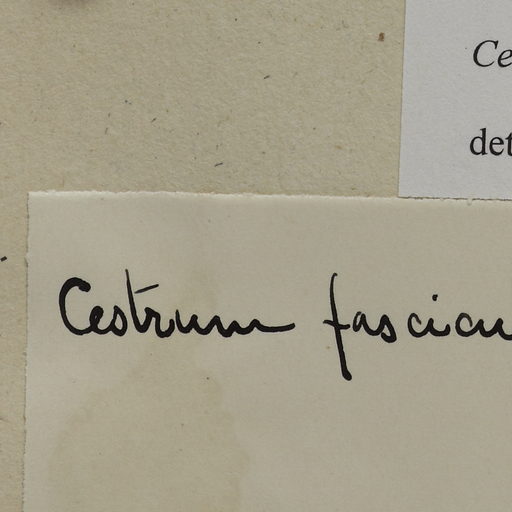 Ce
det
Cestrum fascicu